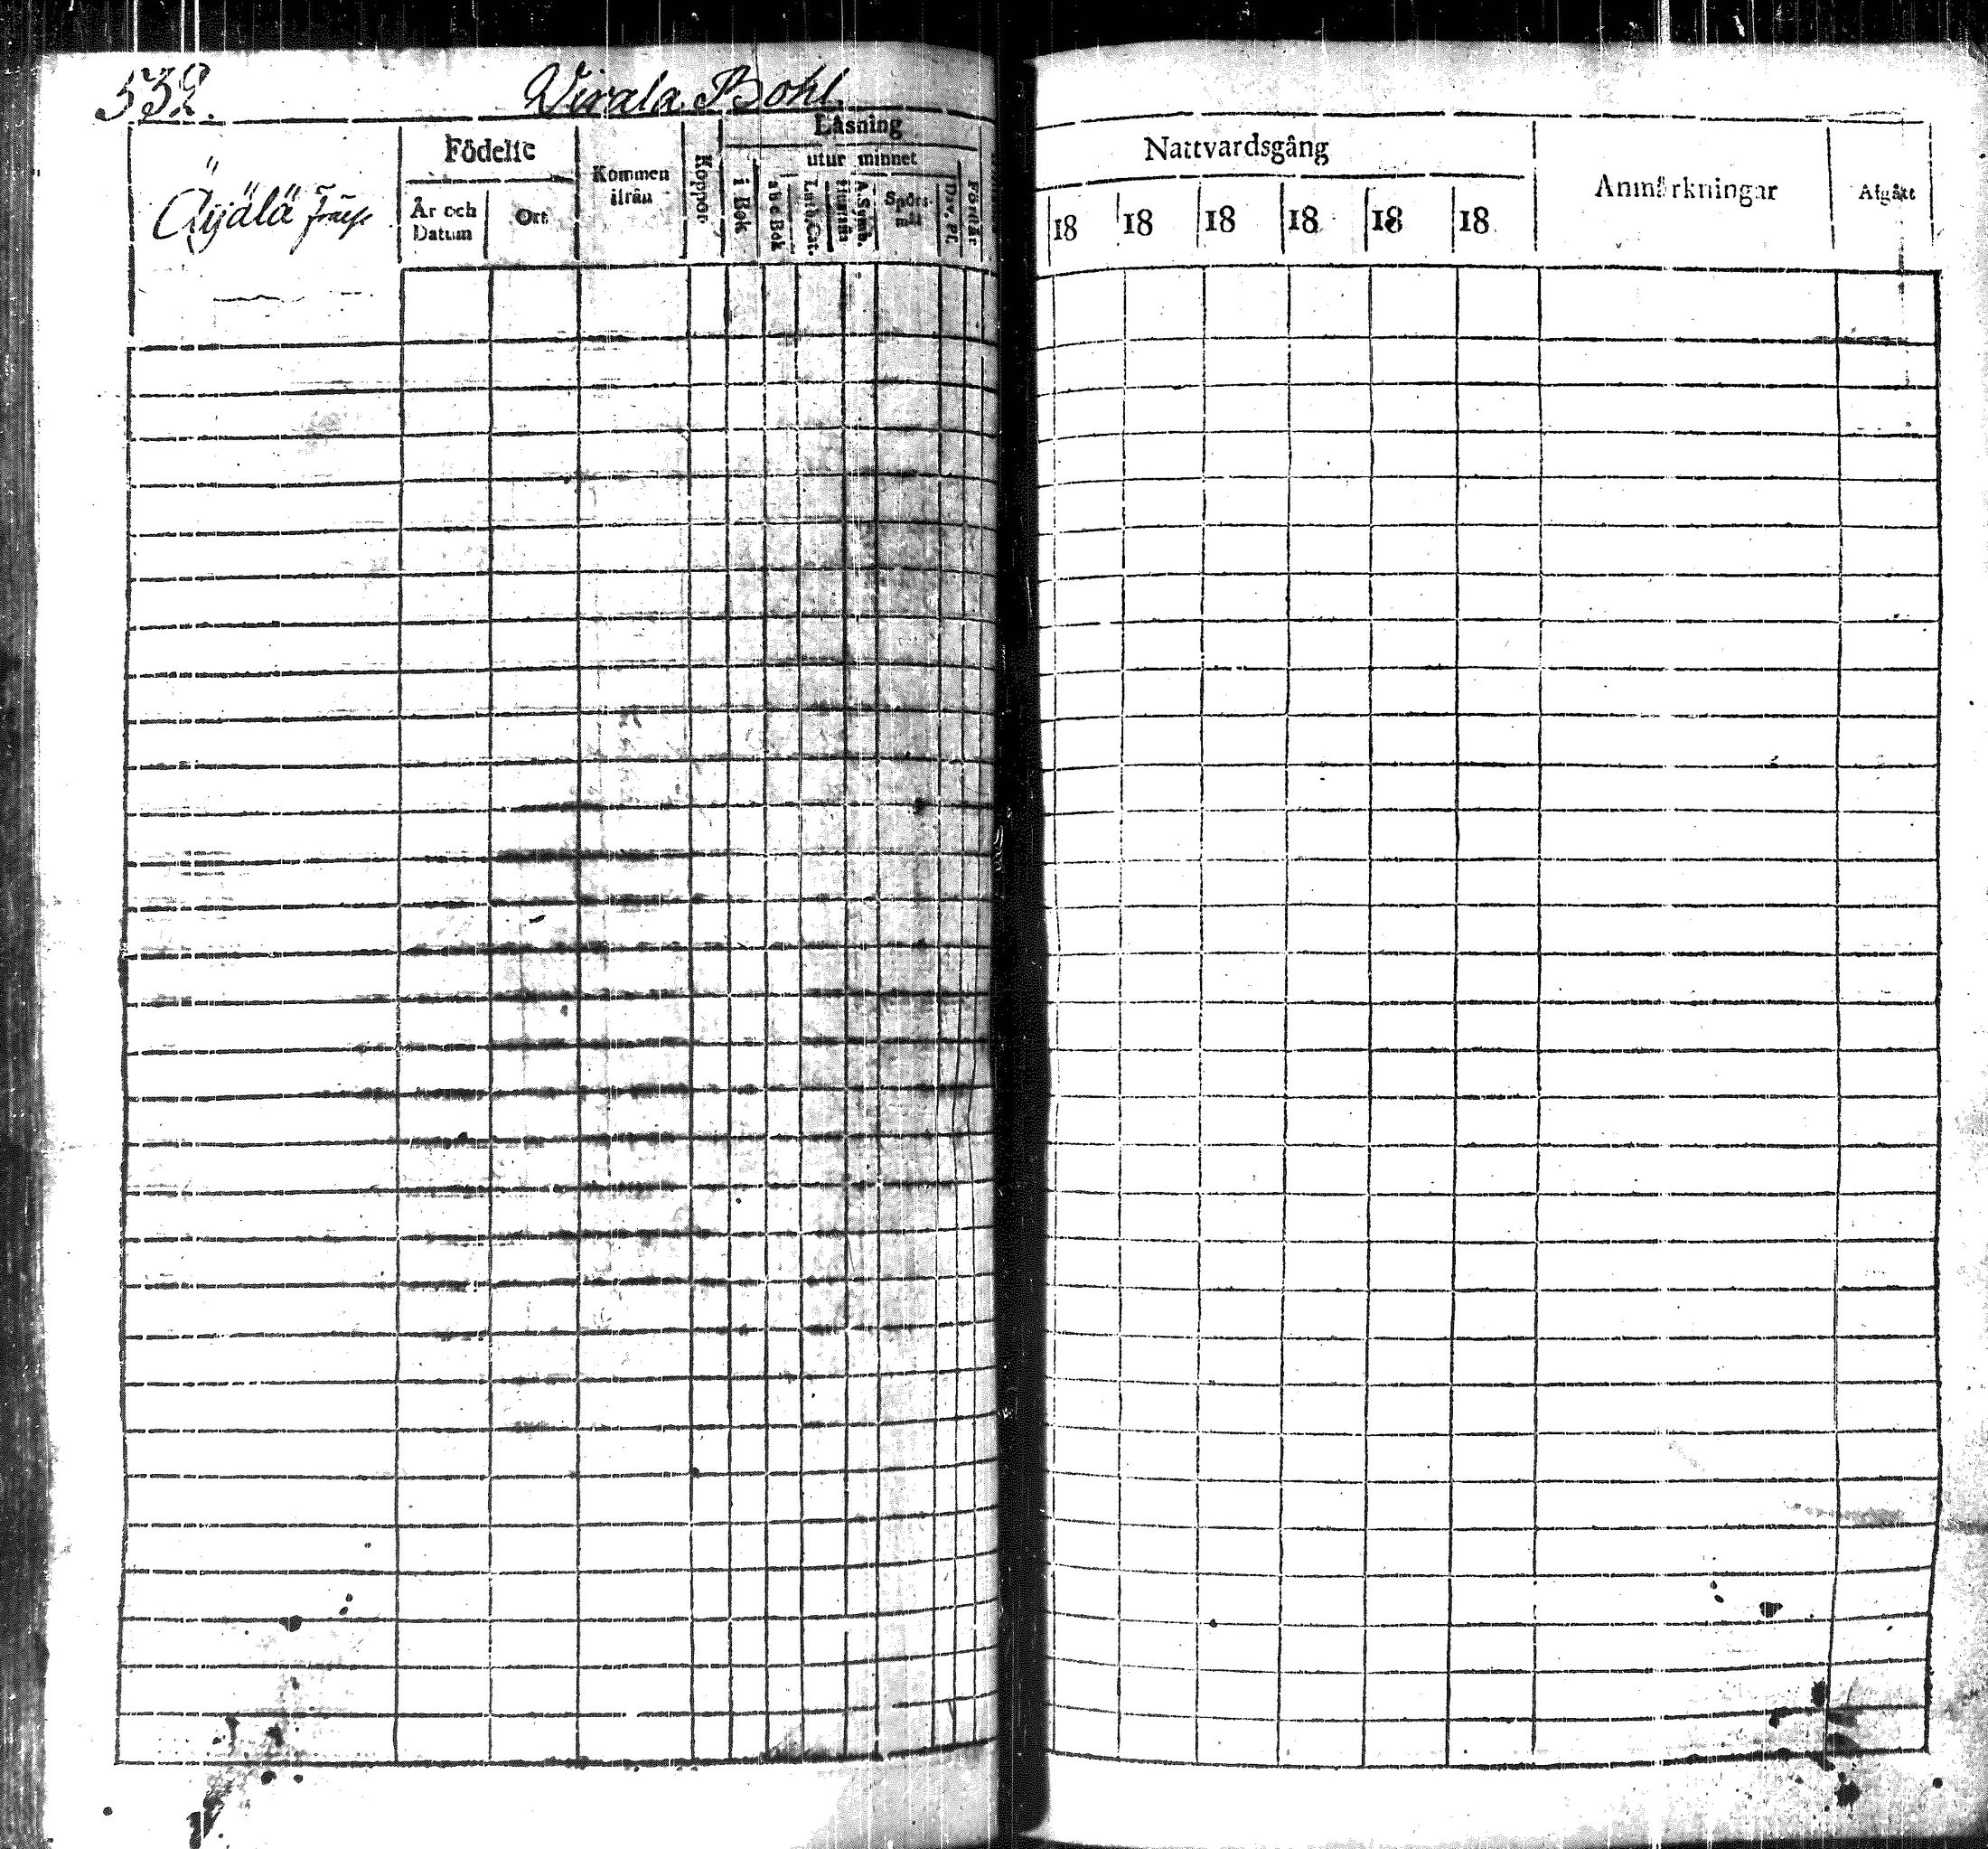 532. Virala Bohl
Läsning
Födelse
Kommen
ifrån
Koppor
utur minnet
Äijälä
År och
Datum
Ort
i Bok
abc Bok
Luth. Cat.
Hustafla
A. Symb.
Spörs-
mål
Dav. Ps.
Förstår
Nattvardsgång
Anmärkningar
Afgått
18 18 18 18 18 18